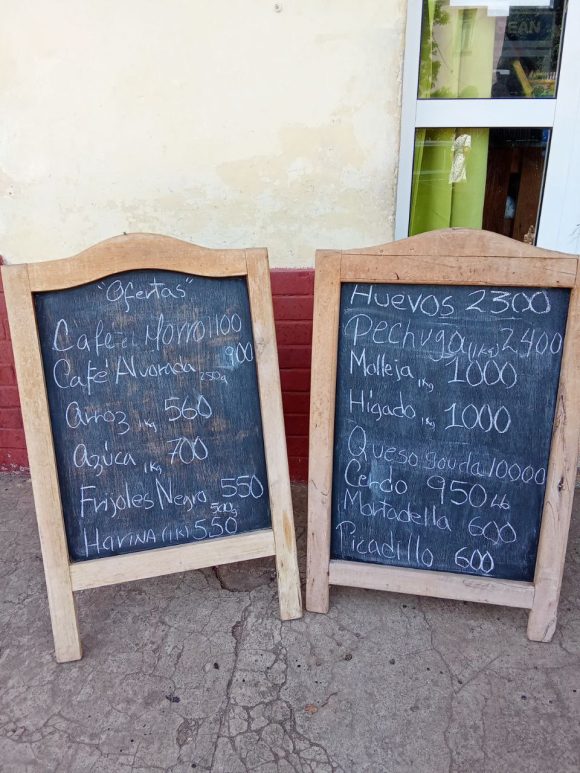 "Ofertas"
Café el Morro 1100
Café Alvorada 250g 900
Arroz 1Kg 560
Azúca 1Kg 700
Frijoles Negro 500g 550
Harina 1K 550
Huevos 2300
Pechuga (1Kg) 2400
Molleja 1Kg 1000
Higado 1Kg 1000
Queso gouda 10000
Cerdo 950 Lb
Mortadella 600
Picadillo 600